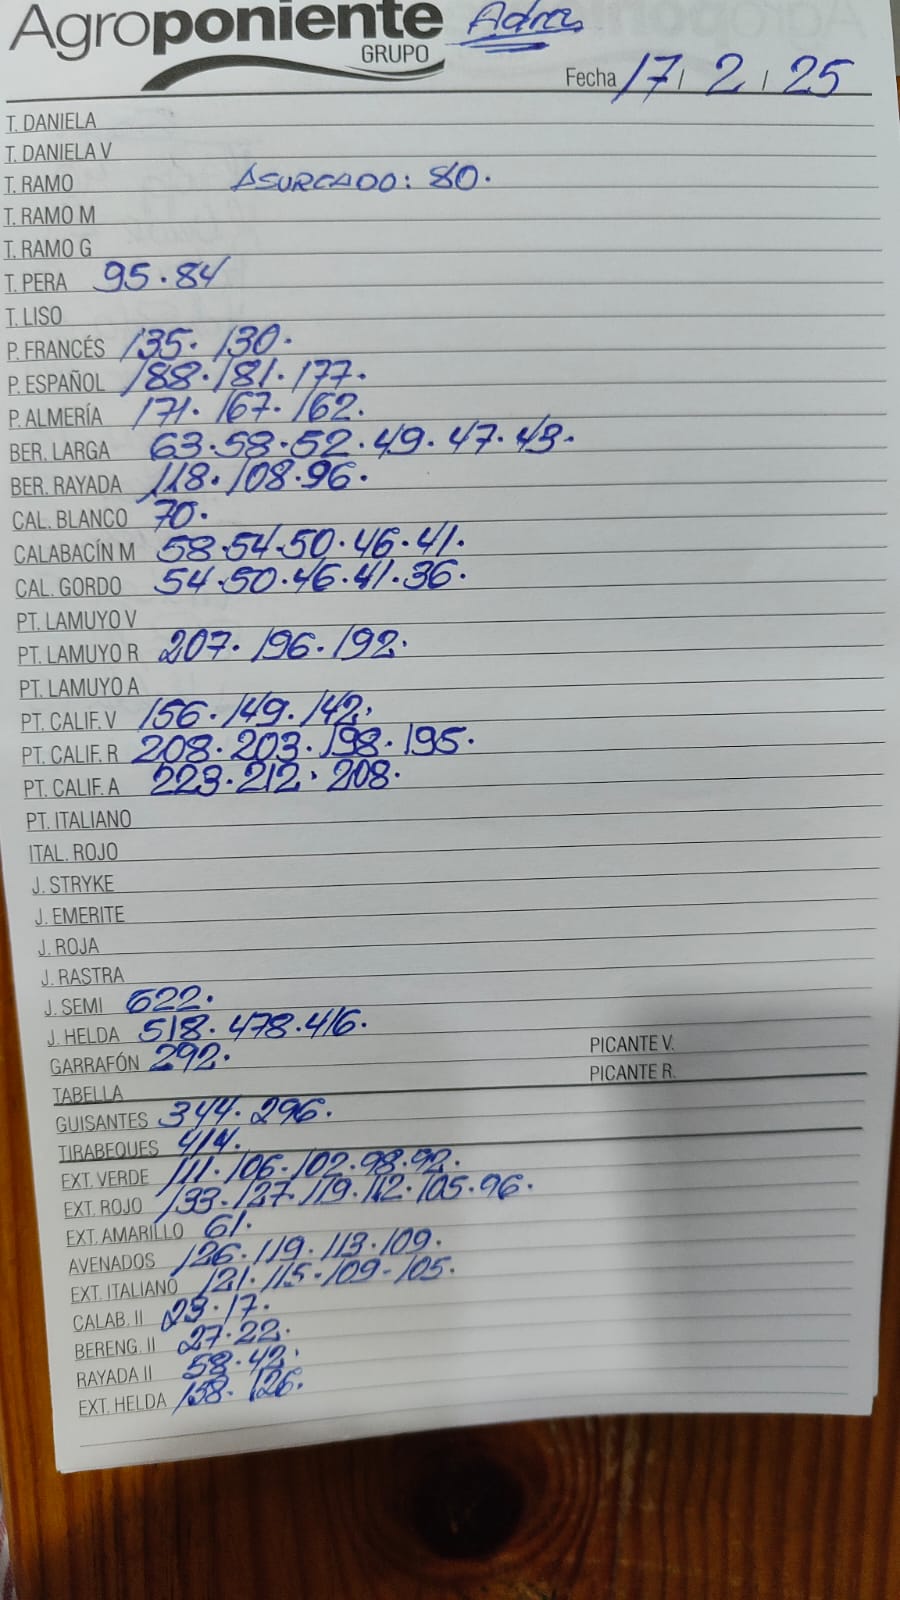 Agroponiente Adra
GRUPO
Fecha 17 / 2 / 25
T. DANIELA
T. DANIELA V
T. RAMO ASURCADO: 80.
T. RAMO M
T. RAMO G
T. PERA 95 · 84
T. LISO
P. FRANCÉS 135 · 130.
P. ESPAÑOL 188 · 181 · 177.
P. ALMERÍA 171 · 167 · 162.
BER. LARGA 63 · 58 · 52 · 49 · 47 · 43.
BER. RAYADA 118 · 108 · 96.
CAL. BLANCO 70.
CALABACÍN M 58 · 54 · 50 · 46 · 41.
CAL. GORDO 54 · 50 · 46 · 41 · 36.
PT. LAMUYO V
PT. LAMUYO R 207 · 196 · 192.
PT. LAMUYO A
PT. CALIF. V 156 · 149 · 142.
PT. CALIF. R 208 · 203 · 198 · 195.
PT. CALIF. A 223 · 212 · 208.
PT. ITALIANO
ITAL. ROJO
J. STRYKE
J. EMERITE
J. ROJA
J. RASTRA
J. SEMI 622.
J. HELDA 518 · 478 · 416.
GARRAFÓN 292. PICANTE V.
TABELLA PICANTE R.
GUISANTES 344 · 296.
TIRABEQUES 414.
EXT. VERDE 111 · 106 · 102 · 98 · 92.
EXT. ROJO 133 · 127 · 119 · 112 · 105 · 96.
EXT. AMARILLO 61.
AVENADOS 126 · 119 · 113 · 109.
EXT. ITALIANO 121 · 115 - 109 - 105.
CALAB. II 23 · 17.
BERENG. II 27 · 22.
RAYADA II 58 · 42.
EXT. HELDA 158 · 126.